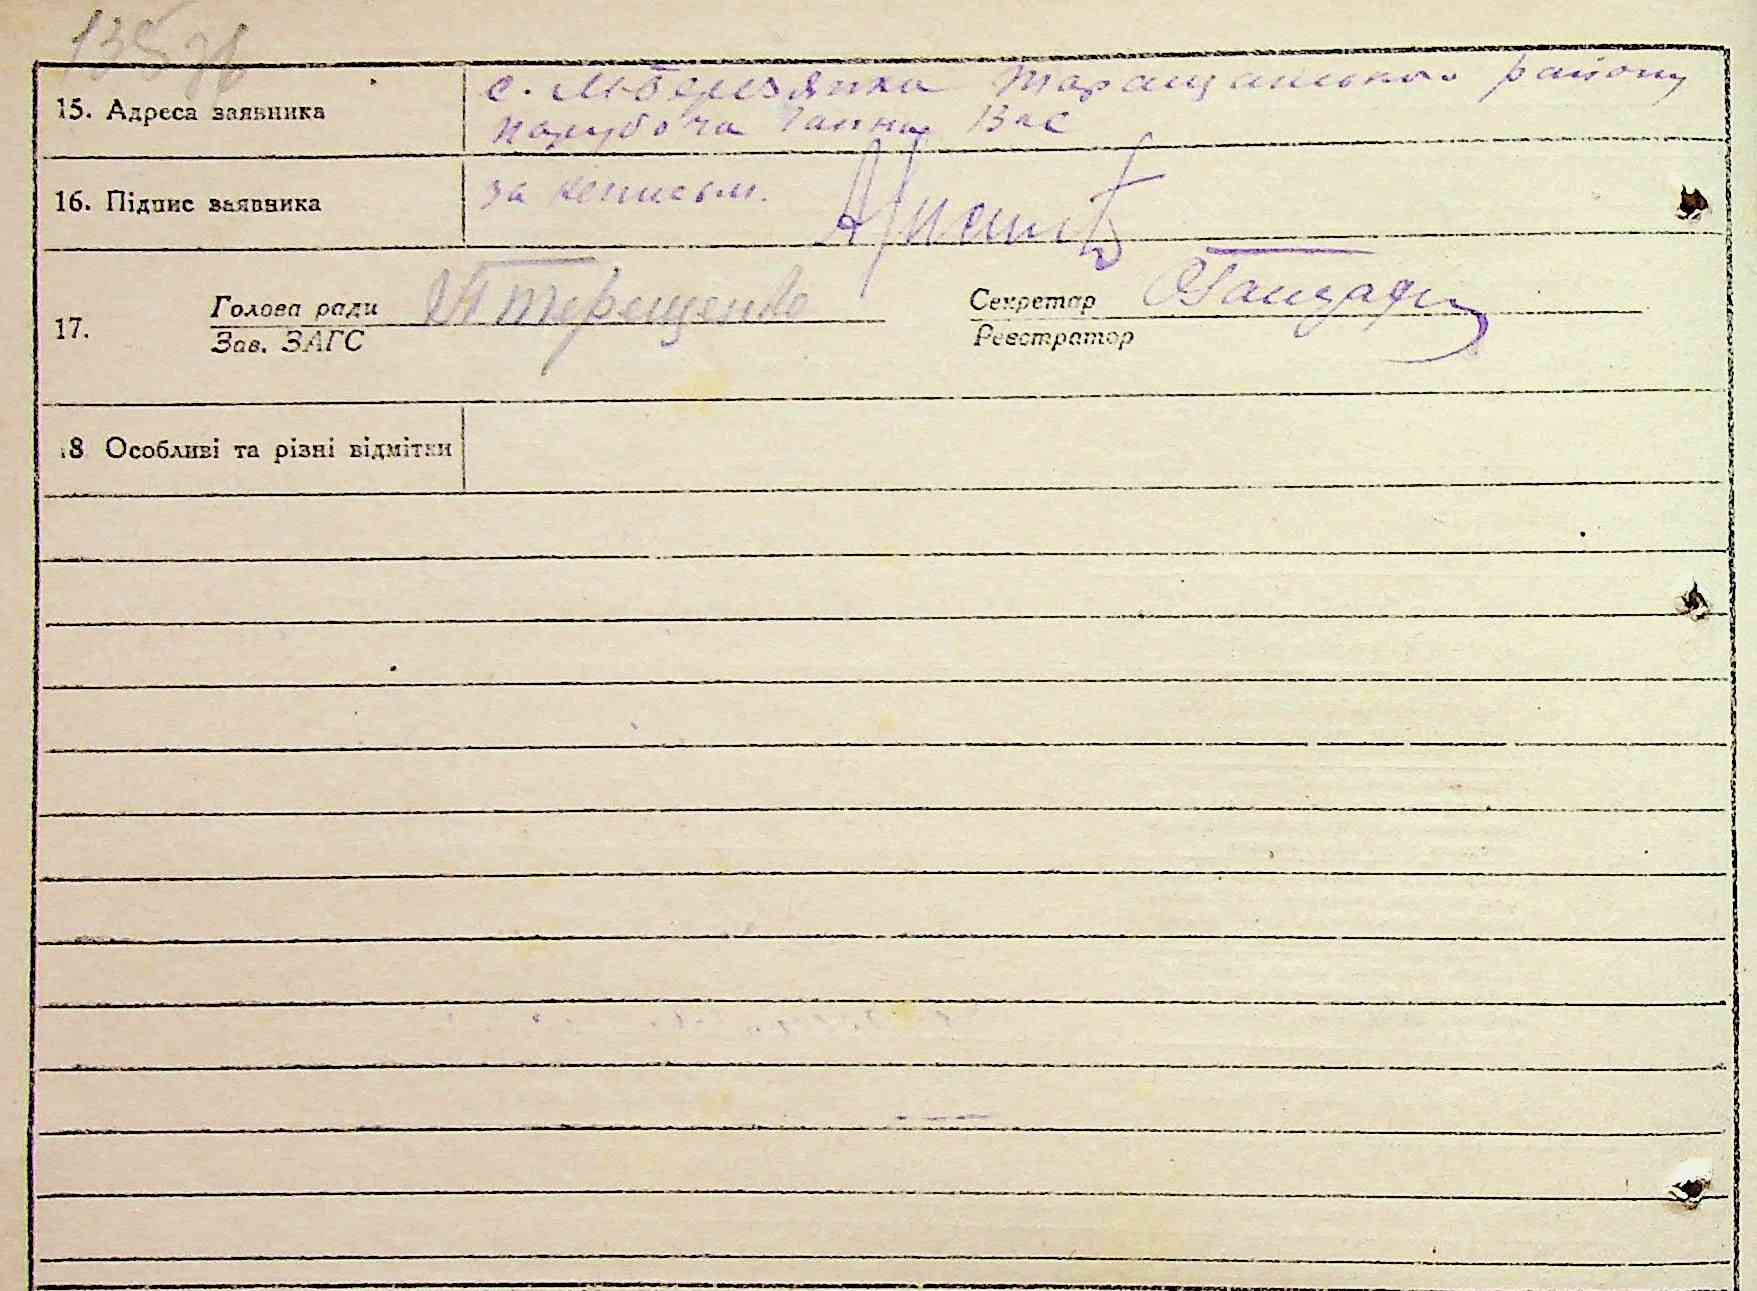 135зв
15. Адреса заявника
с. М-Березянка Таращанського району
Парубоча Ганна Вас
16. Підпис заявника
за неписьм.
17. Голова ради Терещенко Секретар
Зав. ЗАГС Реєстратор
18 Особливі та різні відмітки